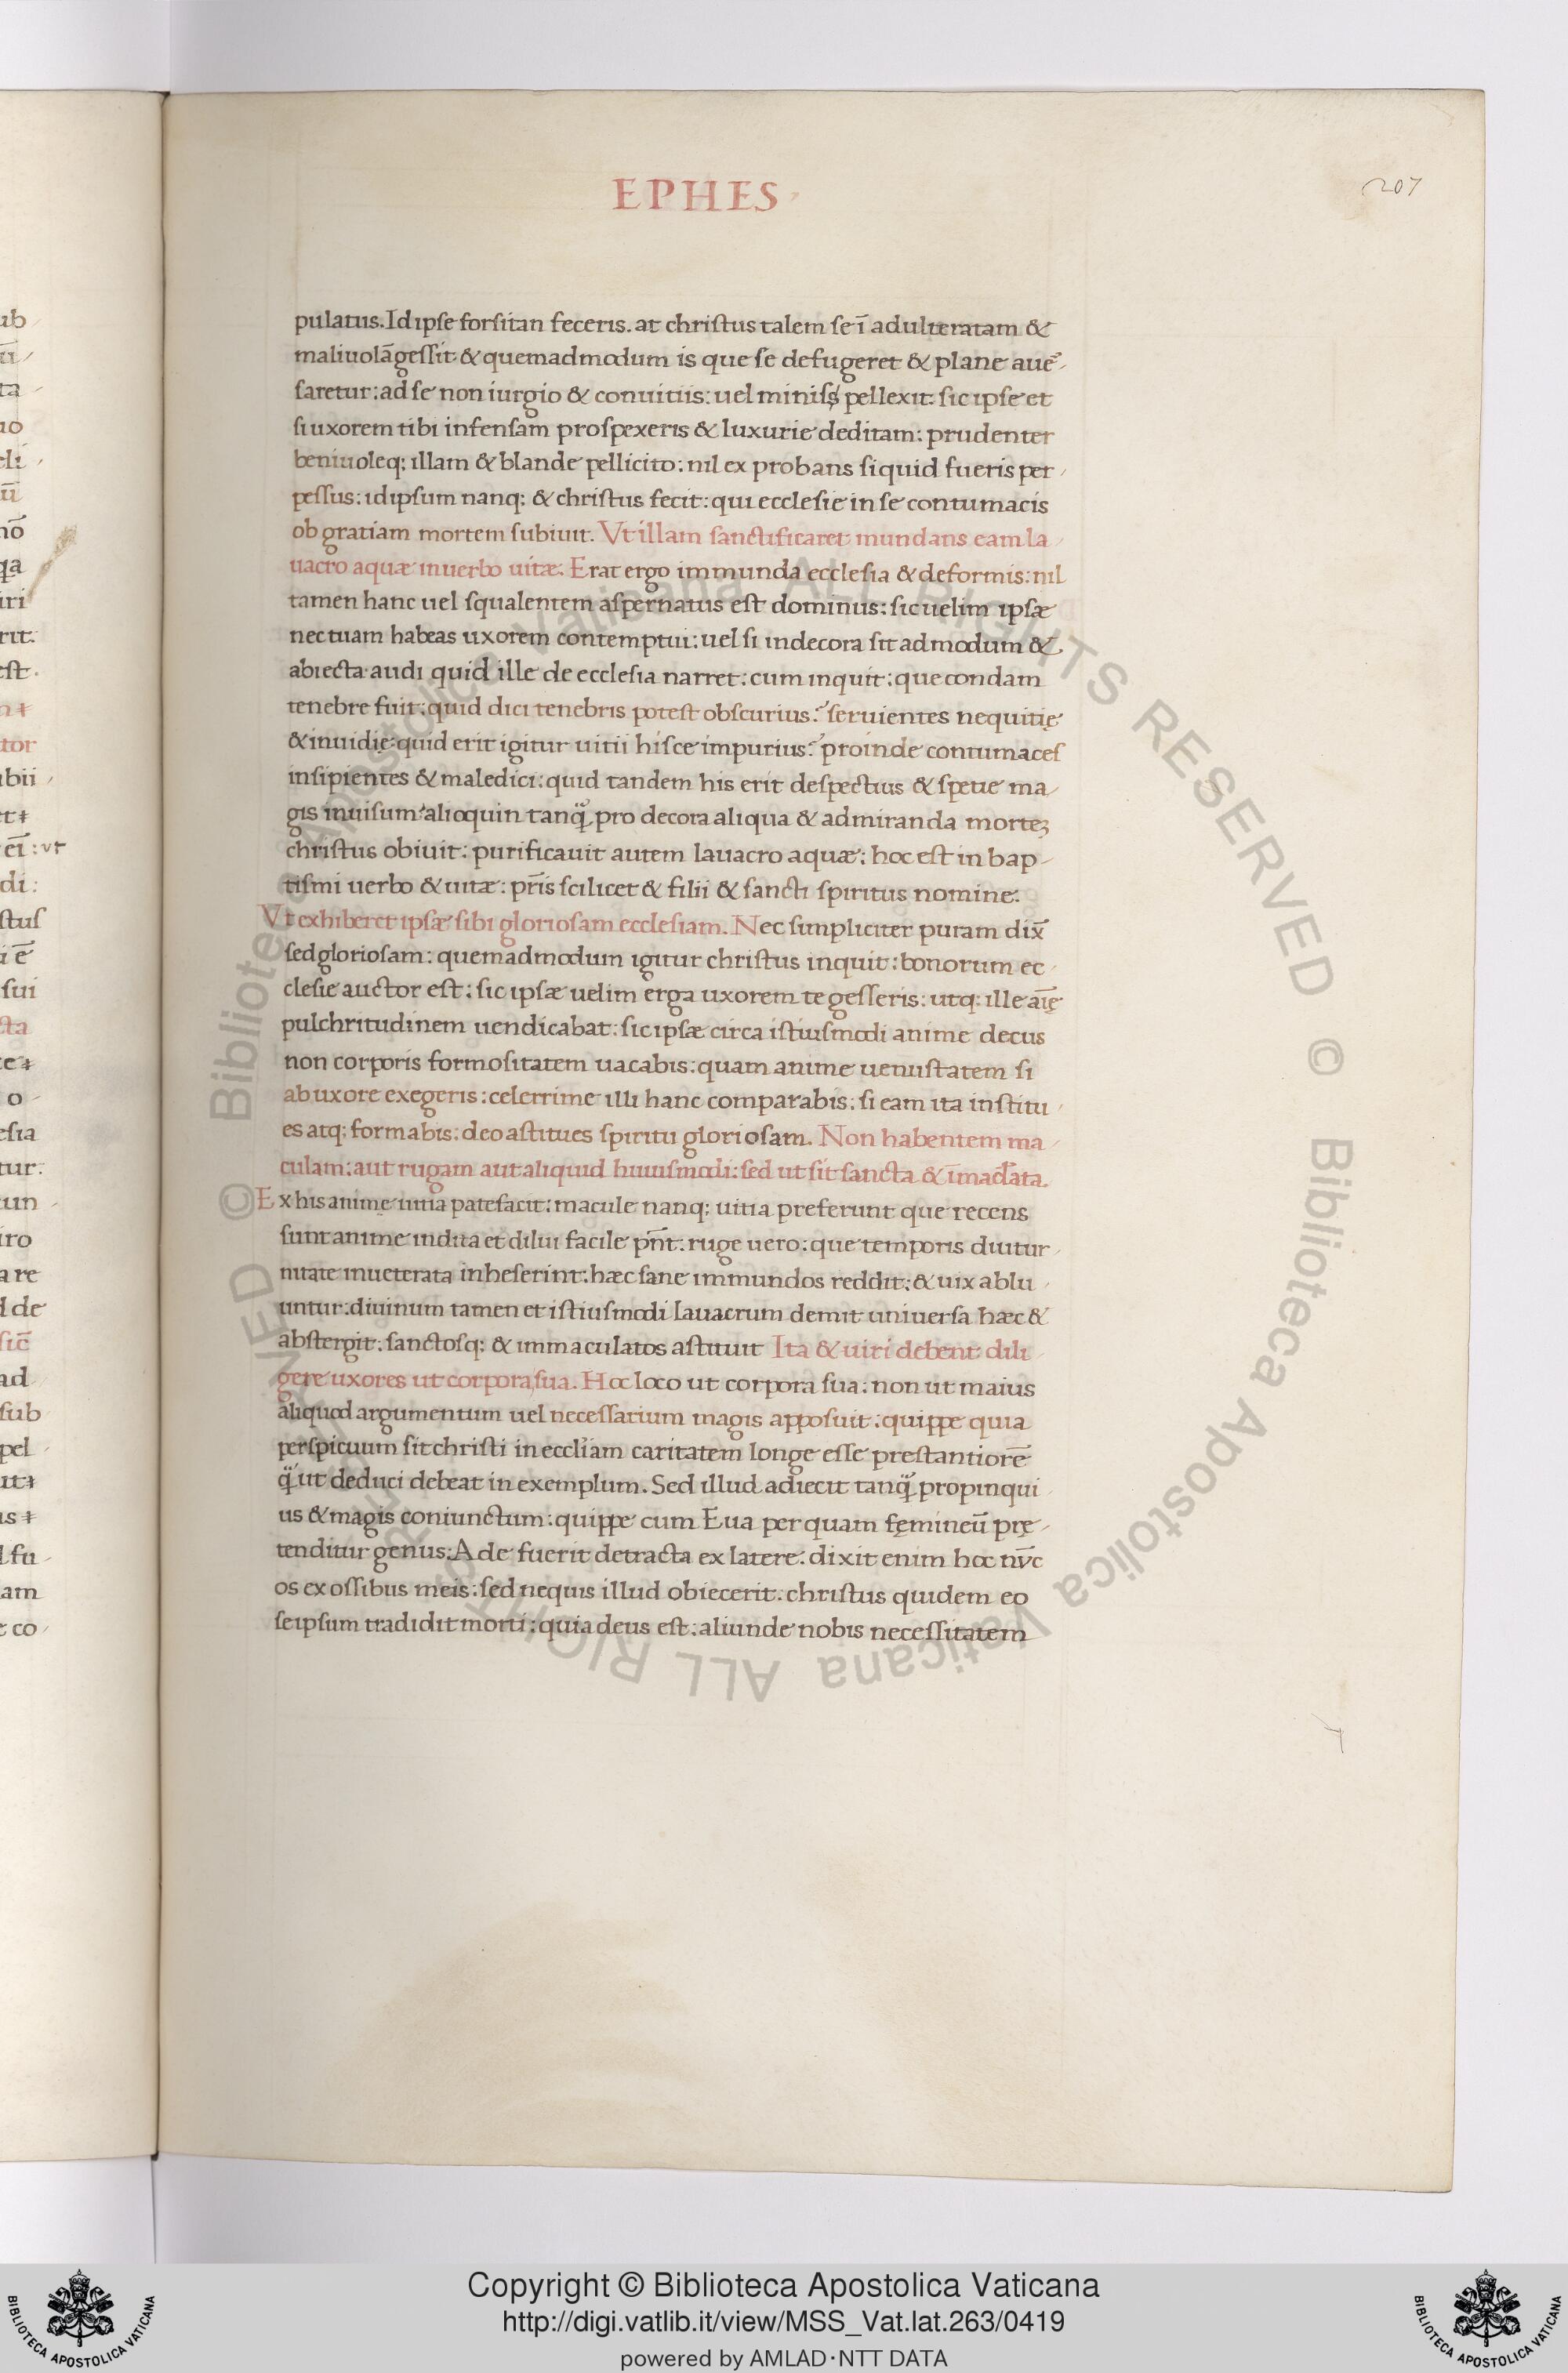 EPHES
207
pulatus. Id ipse forsitan feceris. at christus talem se ī adulteratam &
maliuolā gessit: & quemadmodum is que se defugeret & plane aue
saretur: ad se non iurgio & conuitiis: uel minis pellexit: sic ipse et
si uxorem tibi infensam prospexeris & luxurie deditam: prudenter
beniuoleq; illam & blande pellicito: nil ex probans siquid fueris per
pessus: id ipsum nanq; & christus fecit: qui ecclesie in se contumacis
ob gratiam mortem subiuit. Vt illam sanctificaret mundans eam la
uacro aquæ in uerbo uitæ. Erat ergo immunda ecclesia & deformis: nil
tamen hanc uel squalentem aspernatus est dominus: sic uelim ipsæ
nec tuam habeas uxorem contemptui: uel si indecora sit admodum &
abiecta audi quid ille de ecclesia narret: cum inquit: que condam
tenebre fuit: quid dici tenebris potest obscurius? seruientes nequitię
& inuidię: quid erit igitur uitii hisce impurius? proinde contumaces
insipientes & maledici: quid tandem his erit despectius & spetie ma
gis inuisum? alioquin tanq̃ pro decora aliqua & admiranda mortēȝ
christus obiuit: purificauit autem lauacro aquæ: hoc est in bap
tismi uerbo & uitæ: pr̄is scilicet & filii & sancti spiritus nomine.
Vt exhiberet ipsæ sibi gloriosam ecclesiam. Nec simpliciter puram dix̄
sed gloriosam: quemadmodum igitur christus inquit: bonorum ec
clesie auctor est: sic ipsæ uelim erga uxorem te gesseris: utq; ille aīę
pulchritudinem uendicabat: sic ipsæ circa istiusmodi anime decus
non corporis formositatem uacabis: quam anime uenustatem si
ab uxore exegeris: celerrime illi hanc comparabis: si eam ita institu
es atq; formabis: deo astitues spiritu gloriosam. Non habentem ma
culam: aut rugam aut aliquid huiusmodi: sed ut sit sancta & īmac̄lata.
Ex his anime uitia patefacit: macule nanq; uitia preferunt que recens
sunt anime indita et dilui facile pn̄t: ruge uero: que temporis diutur
nitate inueterata inheserint: hæc sane immundos reddit: & uix ablu
untur: diuinum tamen et istiusmodi lauacrum demit uniuersa hæc &
abstergit. sanctosq; & immaculatos astituit Ita & uiri debent dili
gere uxores ut corpora sua. Hoc loco ut corpora sua: non ut maius
aliquod argumentum uel necessarium magis apposuit: quippe quia
perspicuum sit christi in eccl̄iam caritatem longe esse prestantiorē
q̃ ut deduci debeat in exemplum. Sed illud adiecit tanq̃ propinqui
us & magis coniunctum: quippe cum Eua per quam fęmineū prę
tenditur genus: Ade fuerit detracta ex latere: dixit enim hoc nv̄c
os ex ossibus meis: sed nequis illud obiecerit. christus quidem eo
seipsum tradidit morti: quia deus est: aliunde nobis necessitatem
Copyright © Biblioteca Apostolica Vaticana
http://digi.vatlib.it/view/MSS_Vat.lat.263/0419
powered by AMLAD·NTT DATA